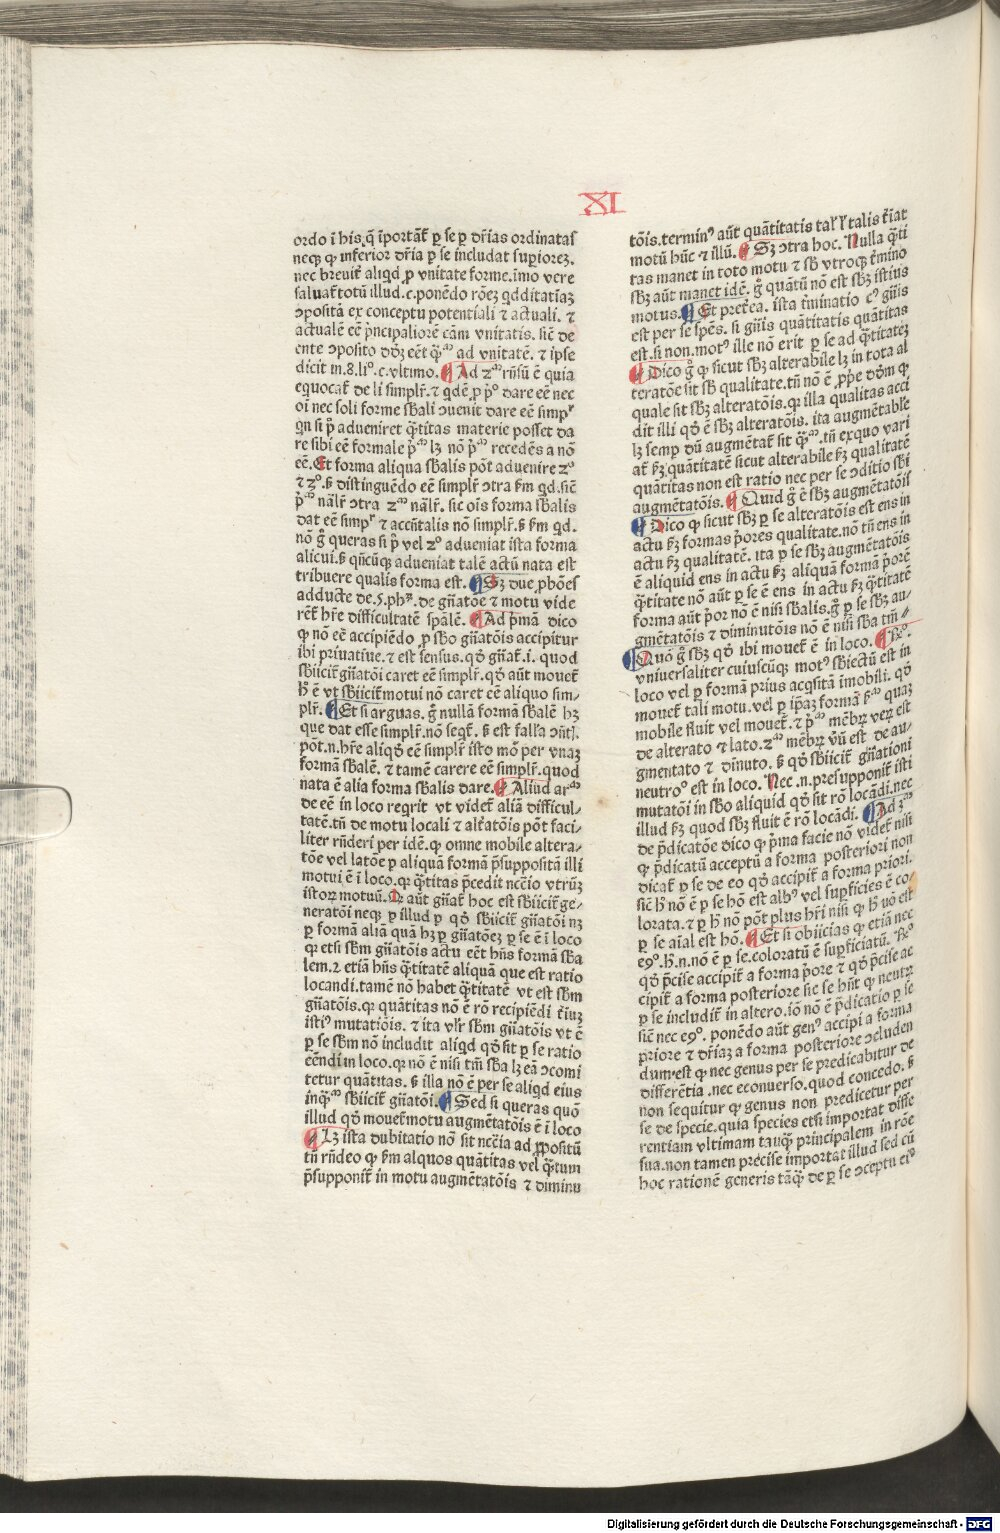 XI
ordo ī his q̄ īportāt̄ ꝑ se ꝑ dr̄ias ordinatas
neqꝫ ꝙ inferior dr̄ia ꝑ se includat supiorez.
nec breuit̄ aliqd ꝓ vnitate forme.īmo vere
saluat̄ totū illud.c.ponēdo rōez qdditatiaꝫ
ↄpositā ex conceptu potentiali ⁊ actuali. ⁊
actualē eē pͥncipaliorē cām vnitatis. sic̄ de
ente ↄposito dꝫ eēt q̄ꝫ ad vnitatē. ⁊ ipse
dicit in.8.liº.c.vltimo. Ad 2ᵐ rn̄sū ē quia
equocat̄ de li simplr̄.⁊ qdē ꝓ pͥº dare eē nec
oi nec soli forme sb̄ali ↄuenit dare eē simpʳ
qn si pͥ adueniret q̄titas materie posset da
re sibi eē formale pͥᵐ lꝫ nō pͥᵐ recedēs a nō
eē. Et forma aliqua sb̄alis pōt aduenire 2º
⁊ 2º. ß distinguēdo eē simplr̄ ↄtra ẞm qd.sic̄
pͥᵐ nālr̄ ↄtra 2ᵐ nālr̄. sic oīs forma sb̄alis
dat eē simpʳ ⁊ accn̄talis nō simplr̄. ß ẞm qd.
nō gͦ queras si pͥ vel 2º adueniat ista forma
alicui. ß qn̄cūqꝫ adueniat talē actū nata est
tribuere qualis forma est. Sꝫ due ꝓbōes
adducte de.5.phꝫ. de gn̄atōe ⁊ motu vide
rēt̄ hr̄e difficultatē spālē. Ad pͥmā dico
ꝙ nō eē accipiēdo ꝓ sb̄o gn̄atōis accipitur
ibi pͥuatiue.⁊ est sensus.qd̄ gn̄at̄.i. quod
sb̄iicit̄ gn̄atōi caret eē simplr̄. qd̄ aūt mouet̄
hͦ ē vt sb̄iicit̄ motui nō caret eē aliquo sim-
plr̄. Et si arguas. gͦ nullā formā sb̄alē hꝫ
que dat esse simplr̄.nō seqt̄. ß est falla ↄn̄tis.
pōt.n.hr̄e aliqd̄ eē simplr̄ isto mō per vnaꝫ
formā sb̄alē. ⁊ tamē carere eē simplr̄.quod
nata ē alia forma sb̄alis dare. Aliud arᵐ
de eē in loco reqrit vt videt̄ aliā difficul-
tatē.tn̄ de motu locali ⁊ alt̄atōis pōt faci-
liter rn̄deri per idē.ꝙ omne mobile altera-
tōe vel latōe ꝑ aliquā formā p̄suppositā illi
motui ē ī loco.qꝛ q̄titas p̄cedit nccīo vtrūqꝫ
istoꝝ motuū. Qꝛ aūt gn̄at̄ hoc est sb̄iicit̄ ge-
neratōni neqꝫ ꝑ illud ꝑ qd̄ sb̄iicit̄ gn̄atōi nꝫ
ꝑ formā aliā quā hꝫ ꝑ gn̄atōeꝫ ꝑ se ē ī loco
ꝙ etsi sb̄m gn̄atōis actu eēt hn̄s formā sb̄a
lem.⁊ etiā hn̄s q̄titatē aliquā que est ratio
locandi.tamē nō habet q̄titatē vt est sb̄m
gn̄atōis.qꝛ quātitas nō ē rō recipiēdi t̄iuꝫ
istiꝰ mutatiōis. ⁊ ita vlr̄ sb̄m gn̄atōis vt ē
ꝑ se sb̄m nō includit aliqd qd̄ sit ꝑ se ratio
eēndi in loco.qꝛ nō ē nisi tm̄ sb̄a lꝫ eā ↄcomi
tetur quātitas. ß illa nō ē per se aliqd eius
inqᵐ sb̄iicit̄ gn̄atōi. Sed si queras quō
illud qd̄ mouet̄ motu augmētatōis ē ī loco
Lꝫ ista dubitatio nō sit nccīa ad ꝓpositū
tn̄ rn̄deo ꝙ ẞm aliquos quātitas vel q̄tum
p̄supponit̄ in motu augmētatōis ⁊ diminu
tōis.terminꝰ aūt quātitatis talʳ lʳ talis t̄iat
motū hūc ⁊ illū. Sꝫ ↄtra hoc. Nulla q̄ti
tas manet in toto motu ⁊ sb̄ vtroqꝫ t̄mino
sb̄ꝫ aūt manet idē. gͦ quātū nō est sb̄ꝫ istius
motus. Et pret̄ea. ista t̄minatio eꝰ gn̄is
est per se spēs. si gn̄is quātitatis quātitas
est. si non.motꝰ ille nō erit ꝑ se ad q̄titatez
Dico gͦ ꝙ sicut sb̄ꝫ alterabile lꝫ in tota al
teratōe sit sb̄ qualitate.tn̄ nō ē ꝓpͥe dōm ꝙ
quale sit sb̄ꝫ alteratōis. qꝛ illa qualitas acci
dit illi qd̄ ē sb̄ꝫ alteratōis. ita augmētabile
lꝫ semꝑ dū augmētat̄ sit q̄ᵐ.tn̄ ex quo vari
at̄ ẞꝫ quātitatē sicut alterabile ẞꝫ qualitatē
quātitas non est ratio nec per se ↄditio sb̄i
augmētatōis. Quid gͦ ē sb̄ꝫ augmētatōis
Dico ꝙ sicut sb̄ꝫ ꝑ se alteratōis est ens in
actu ẞꝫ formas pͥores qualitate.nō tn̄ ens in
actu ẞꝫ qualitatē. ita ꝑ se sb̄ꝫ augmētatōis
ē aliquid ens in actu ẞꝫ aliquā formā pͥorē
q̄titate nō aūt ꝑ se ē ens in actu ẞꝫ q̄titatē
forma aūt pͥor nō ē nisi sb̄alis.gͦ ꝑ se sb̄ꝫ au-
gmētatōis ⁊ diminutōis nō ē nisi sb̄a tm̄-
Quō gͦ sb̄ꝫ qd̄ ibi mouet̄ ē in loco. Rº.
vniuersaliter cuiuscūqꝫ motꝰ sb̄iectū est in
loco vel ꝑ formā prius acqsitā īmobili. qd̄
mouet̄ tali motu.vel ꝑ ip̄aꝫ formā ẞᵐ quaꝫ
mobile fluit vel mouet̄. ⁊ pͥᵐ mēbꝝ veꝝ est
de alterato ⁊ lato.2ᵐ mēbꝝ vēꝝ est de au-
gmentato ⁊ dinuto. ß qd̄ sb̄iicit̄ gn̄ationi
neutroº est in loco. Nec .n.presupponit̄ isti
mutatōi in sb̄o aliquid qd̄ sit rō locādi.nec
illud ẞꝫ quod sb̄ꝫ fluit ē rō locādi. Ad 3ᵐ
de p̄dicatōe dico ꝙ pͥma facie nō videt̄ nisi
ꝙ p̄dicatū acceptū a forma posteriori non
dicat̄ ꝑ se de eo qd̄ accipit̄ a forma priori.
sic̄ hͦ nō ē ꝑ se hō est albꝰ vel suꝑficies ē co-
lorata.⁊ ꝑ hͦ nō pōt plus hr̄i nisi ꝙ hͦ nō est
ꝑ se aīal est hō. Et si obiicias ꝙ etiā nec
eꝯº.hͦ.n.nō ē ꝑ se.coloratū ē suꝑficiatū. Rº
qd̄ p̄cise accipit̄ a forma pͥore ⁊ qd̄ p̄cise ac
cipit̄ a forma posteriore sic se hn̄t ꝙ neutꝝ
ꝑ se includit̄ in altero.iō nō ē p̄dicatio ꝑ se
sic̄ nec eꝯº. ponēdo aūt genꝰ accipi a forma
priore ⁊ dr̄iaꝫ a forma posteriore ↄcluden
dum est ꝙ nec genus per se predicabitur de
differētia .nec econuerso.quod concedo. ß
non sequitur ꝙ genus non predicetur per
se de specie.quia species etsi importat diffe
rentiam vltimam tanqꝫ principalem in rōe
sua.non tamen precise importat illud sed cū
hoc rationē generis tāqꝫ de ꝑ se ↄceptu eiꝰ
Digitalisierung gefördert durch die Deutsche Forschungsgemeinschaft - DFG